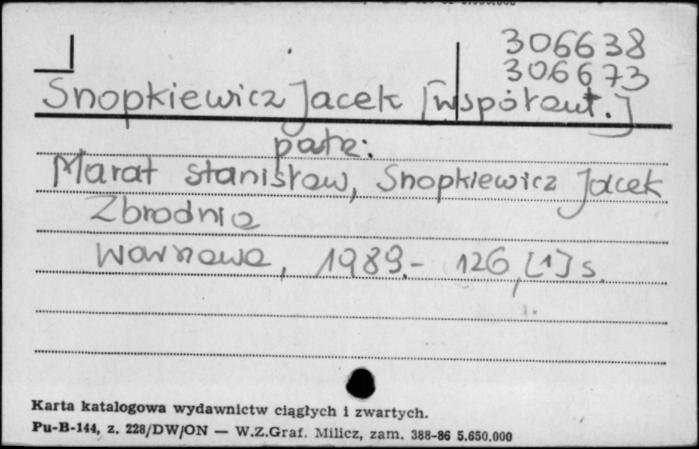 306638
306673
Snopkiewicz Jacek [współaut.]
patrz:
Marat Stanisław, Snopkiewicz Jacek
Zbrodnia
Warszawa, 1989.- 126,[1] s.
Karta katalogowa wydawnictw ciągłych i zwartych.
Pu-B-144, z. 228/DW/ON — W.Z.Graf. Milicz, zam. 388-86 5.650.000